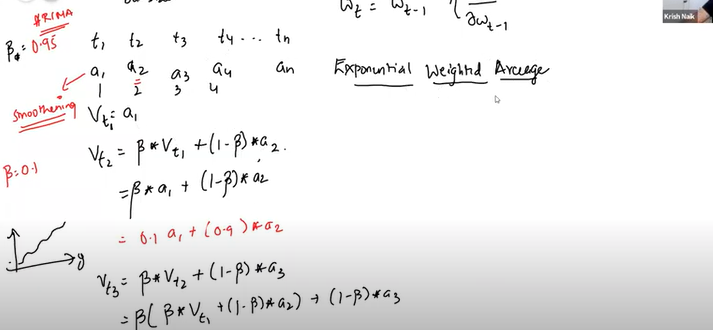 #RIMA
ω_t = ω_{t-1}
∂ω_{t-1}
Krish Naik
β = 0.95
t₁ t₂ t₃ t₄ ... tₙ
a₁ a₂ a₃ a₄ aₙ
1 2 3 4
Exponential Weighted Average
smoothening
V_{t₁} = a₁
V_{t₂} = β * V_{t₁} + (1-β) * a₂.
β = 0.1
= β * a₁ + (1-β) * a₂
= 0.1 a₁ + (0.9) * a₂
y
V_{t₃} = β * V_{t₂} + (1-β) * a₃
= β( β * V_{t₁} + (1-β) * a₂) + (1-β) * a₃